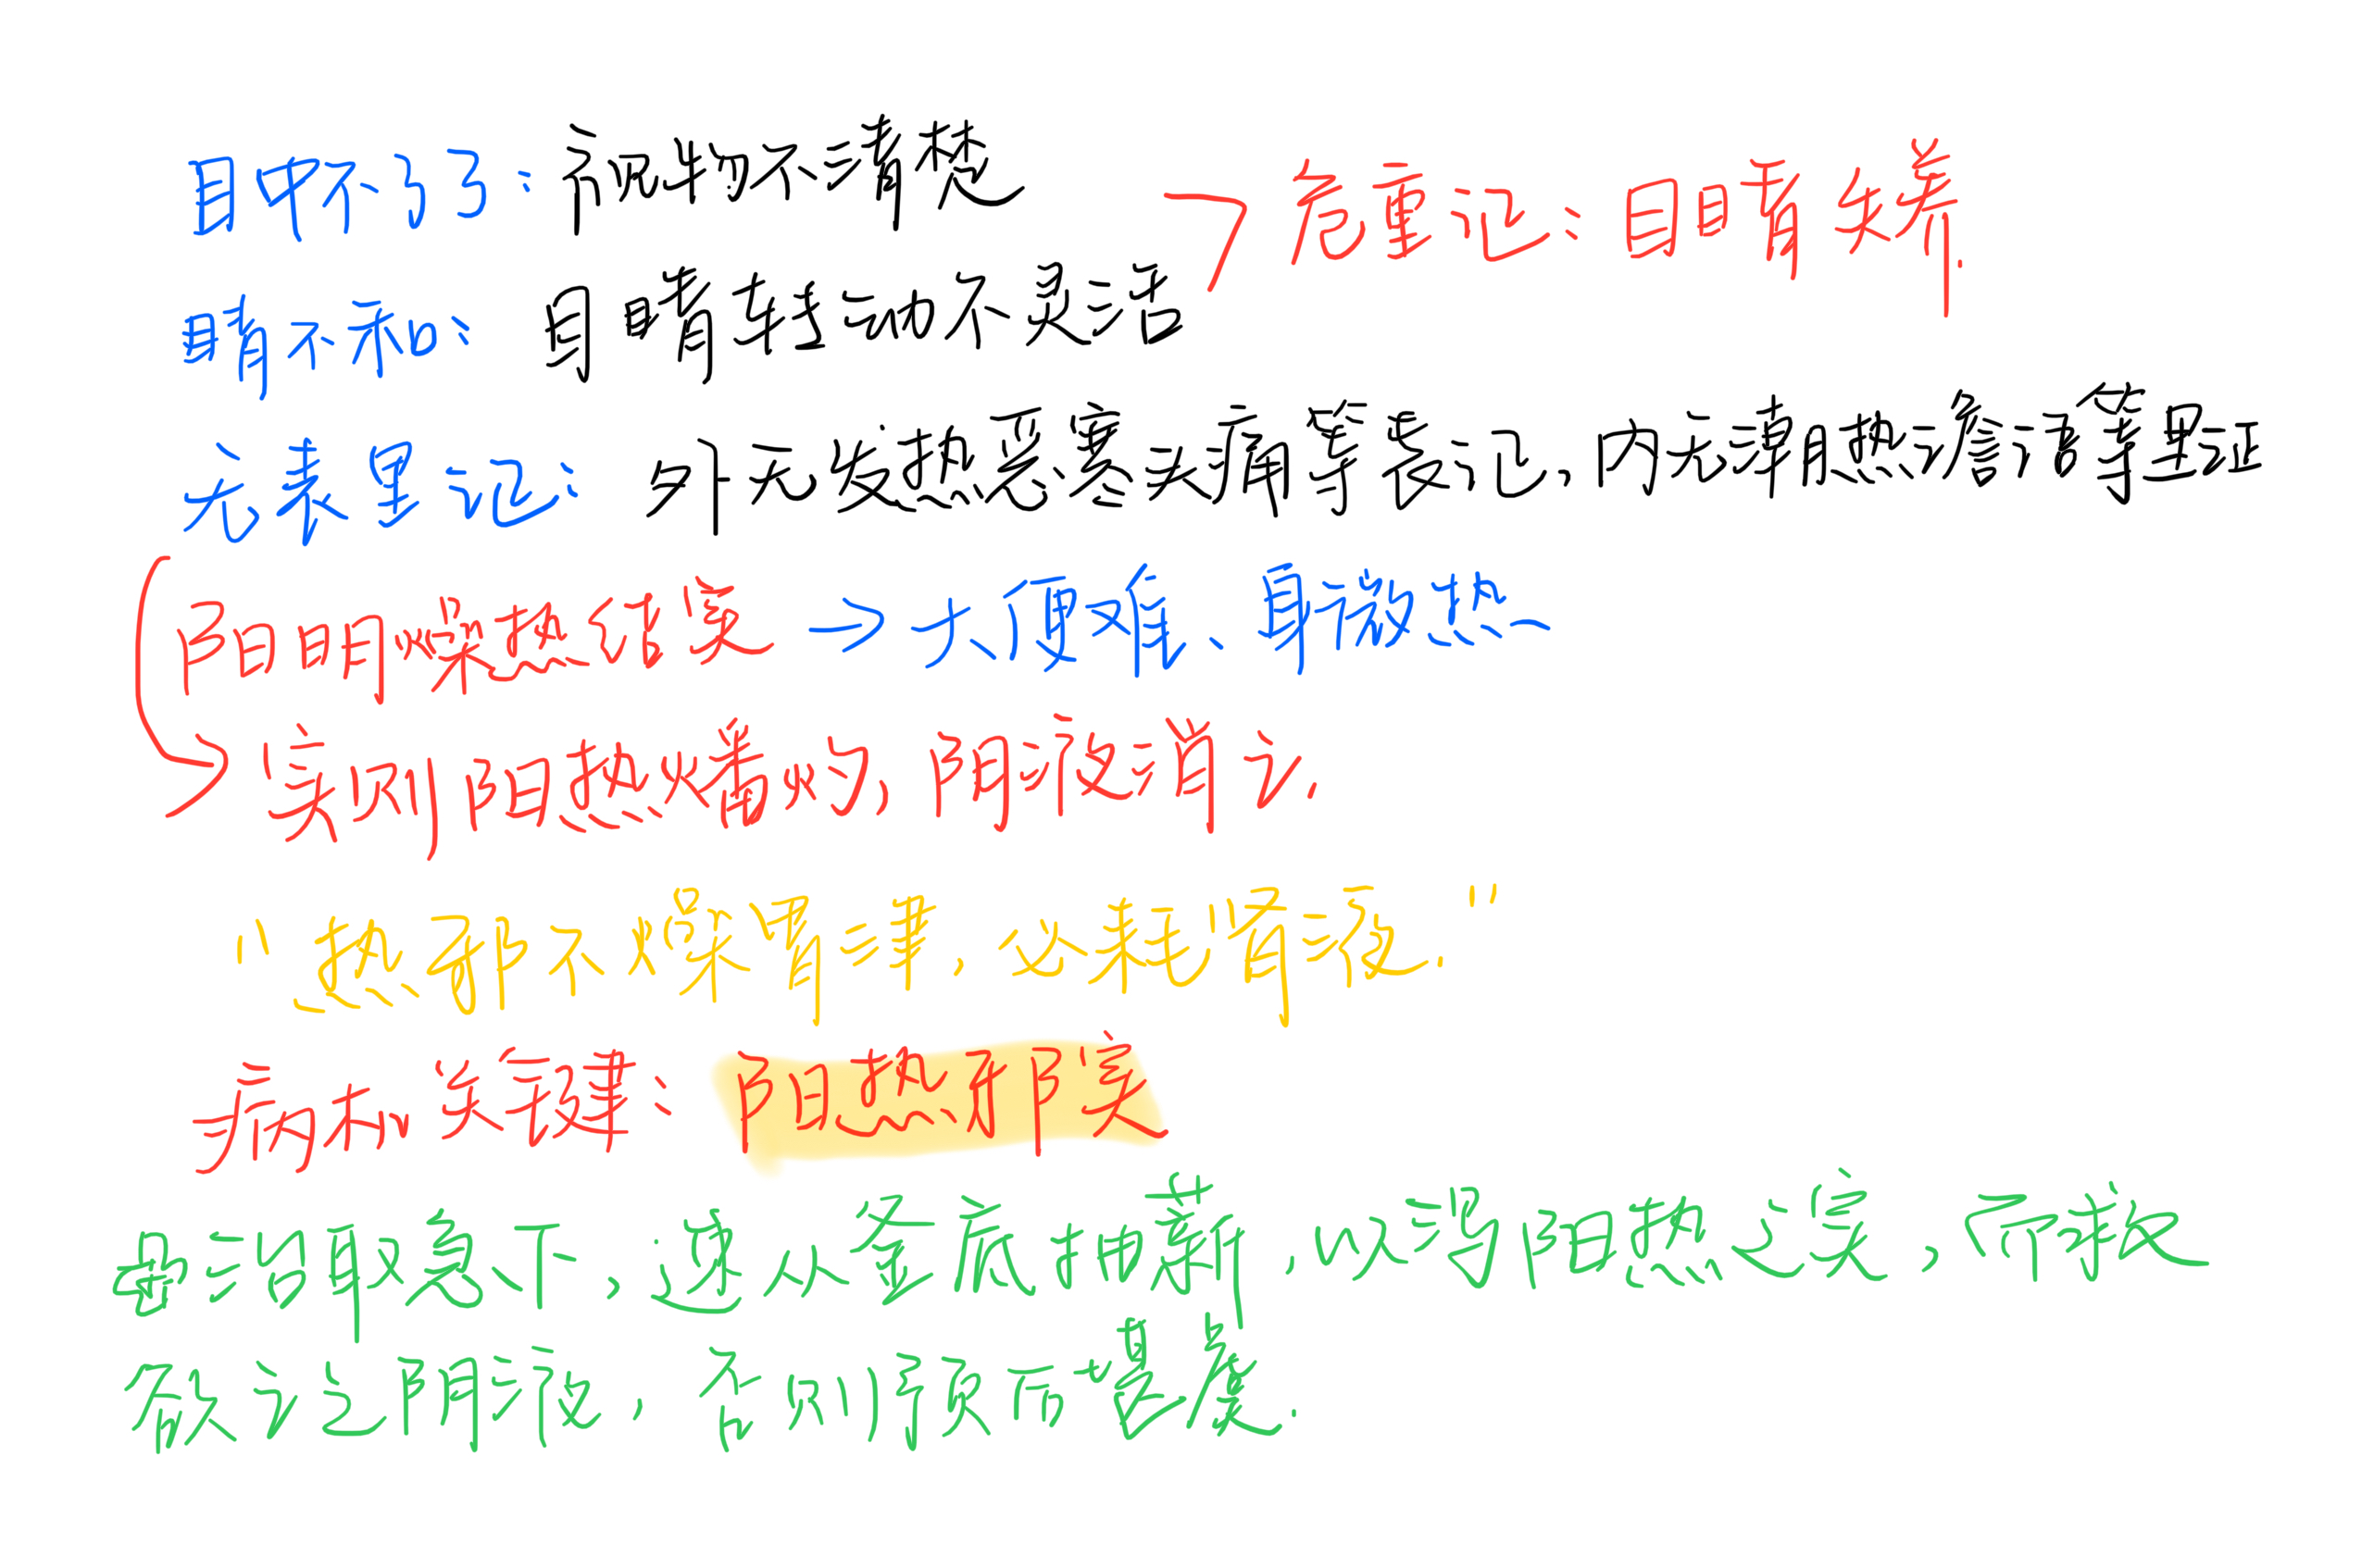 目中不了了：视物不清楚
危重证：目睛失养.
睛不和：目睛转动不灵活
无表里证：外无发热恶寒头痛等表证，内无潮热谵语等里证
阳明燥热结实→大便难、身微热
实则阳热燔灼，阴液消亡.
"热邪不燥胃津，必耗肾液."
病机关键：阳热邪实
治取急下，速从釜底抽薪，以泻阳热之实，而救
欲亡之阴液，否则预后甚差.